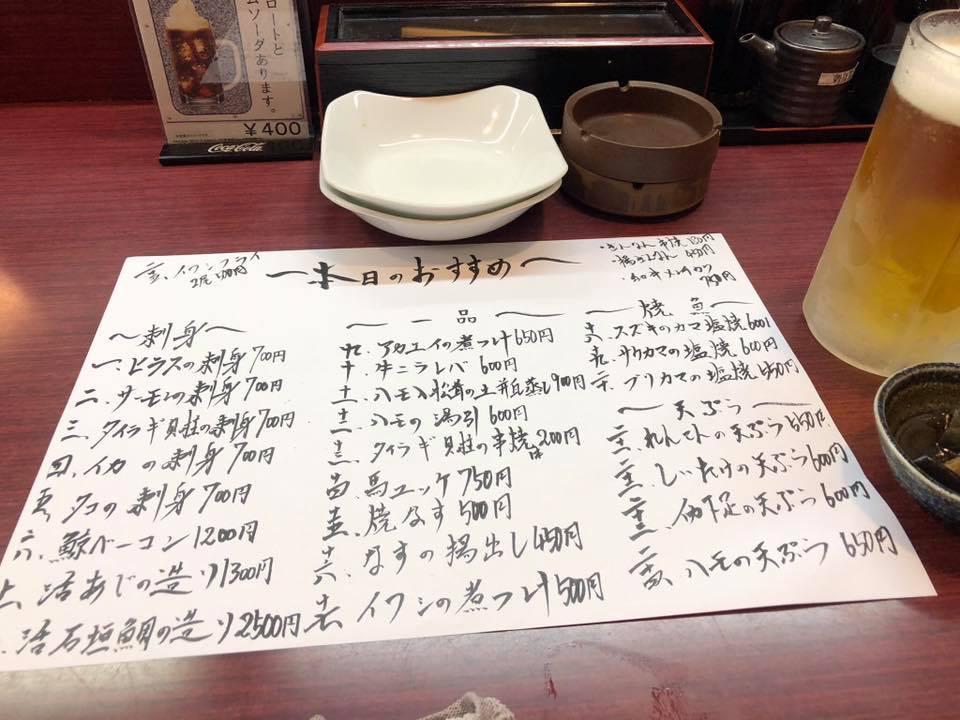 ロートと
ムソーダあります。
¥400
Coca-Cola
二五、イワシフライ
2尾 400円
〜本日のおすすめ〜
・ぎんなん串焼130円
・揚ぎんなん 450円
〜刺身〜
一、ヒラスの刺身 700円
二、サーモンの刺身 700円
三、タイラギ貝柱の刺身 700円
四、イカの刺身 700円
五、タコの刺身 700円
六、鯨ベーコン 1200円
七、活あじの造り 1300円
、活石垣鯛の造り 2500円
〜一品〜
九、アカエイの煮つけ 650円
十、牛ニラレバ 600円
十一、ハモ入松茸の土瓶蒸し 900円
十二、ハモの湯引 600円
十三、タイラギ貝柱の串焼 200円
十四、馬ユッケ 750円
十五、焼なす 500円
十六、なすの揚出し 450円
十七、イワシの煮つけ 500円
〜焼魚〜
十八、スズキのカマ塩焼 600円
十九、サケカマの塩焼 600円
二十、ブリカマの塩焼 450円
〜天ぷら〜
二一、れんこんの天ぷら 550円
二二、しいたけの天ぷら 600円
二三、イカ下足の天ぷら 600円
二四、ハモの天ぷら 650円